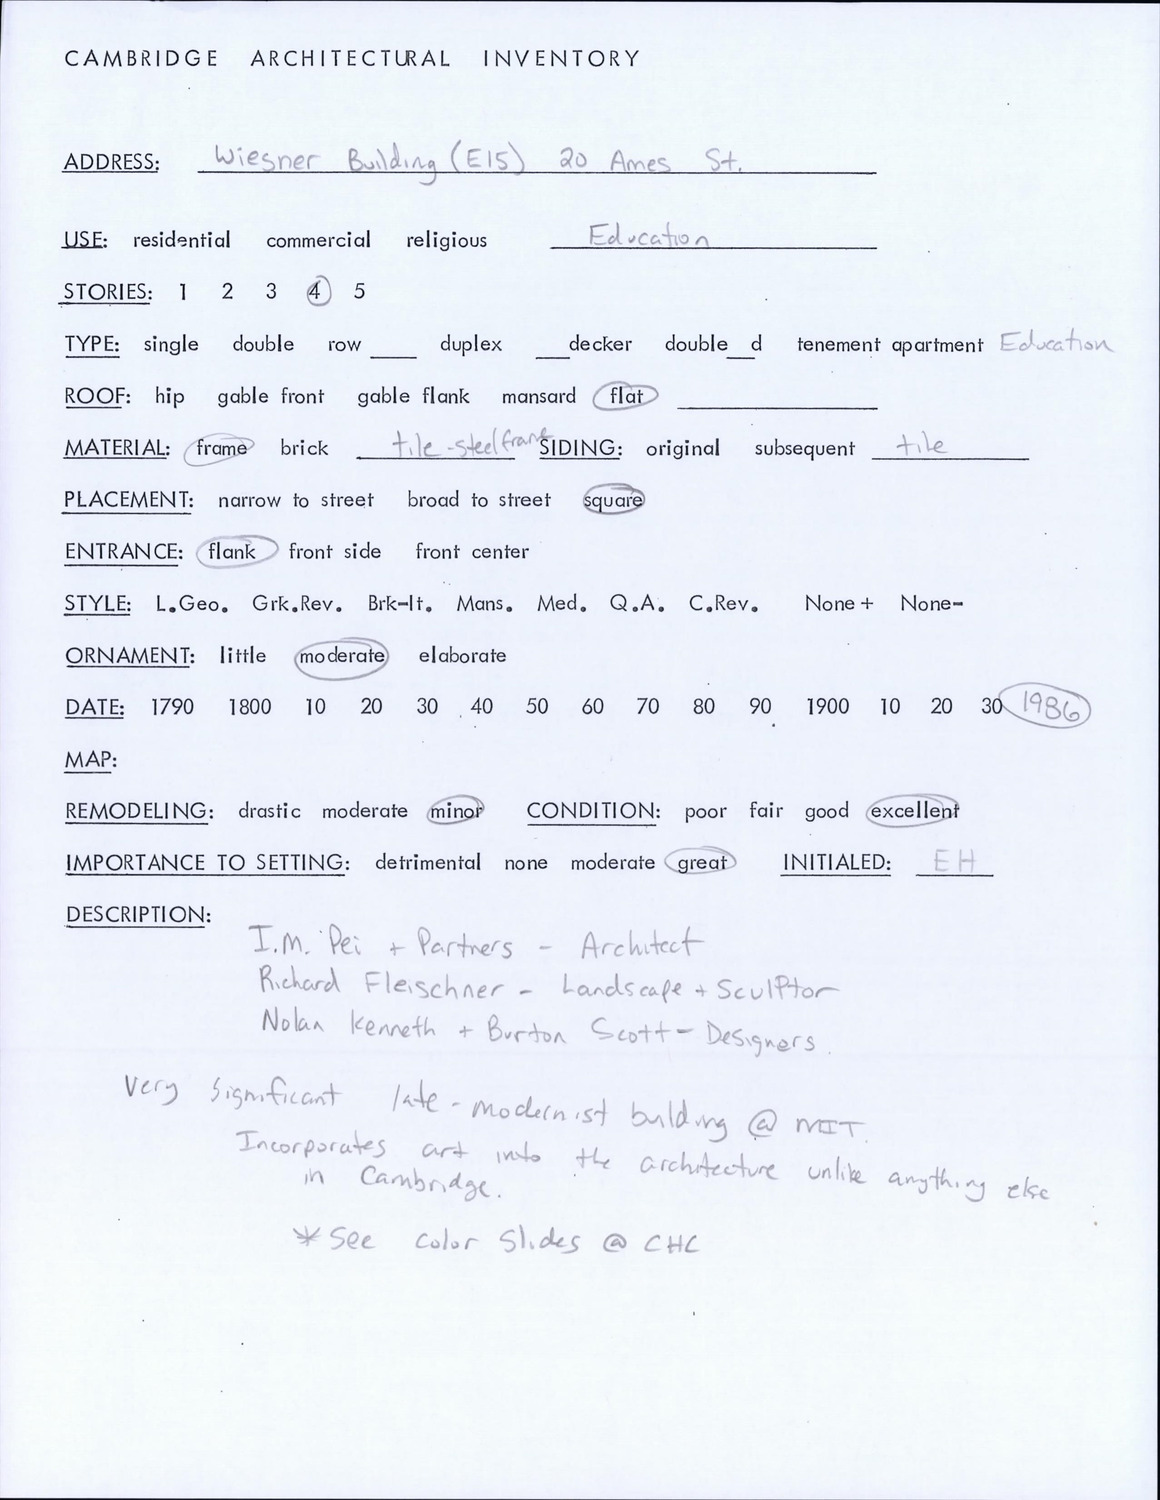 CAMBRIDGE ARCHITECTURAL INVENTORY
ADDRESS: Wiesner Building (E15) 20 Ames St.
USE: residential commercial religious Education
STORIES: 1 2 3 4 5
TYPE: single double row ___ duplex ___decker double__d tenement apartment Education
ROOF: hip gable front gable flank mansard flat
MATERIAL: frame brick tile-steel frame SIDING: original subsequent tile
PLACEMENT: narrow to street broad to street square
ENTRANCE: flank front side front center
STYLE: L.Geo. Grk.Rev. Brk-It. Mans. Med. Q.A. C.Rev. None+ None-
ORNAMENT: little moderate elaborate
DATE: 1790 1800 10 20 30 40 50 60 70 80 90 1900 10 20 30 1986
MAP:
REMODELING: drastic moderate minor CONDITION: poor fair good excellent
IMPORTANCE TO SETTING: detrimental none moderate great INITIALED: EH
DESCRIPTION:
I.M. Pei + Partners - Architect
Richard Fleischner - Landscape + Sculptor
Nolan Kenneth + Burton Scott - Designers.
Very significant late-modernist building @ MIT.
Incorporates art into the architecture unlike anything else
in Cambridge.
* See color slides @ CHC